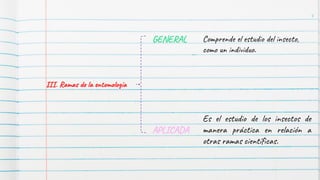 GENERAL
Comprende el estudio del insecto,
como un individuo.
III. Ramas de la entomologia
Es el estudio de los insectos de
manera práctica en relación a
otras ramas científicas.
APLICADA